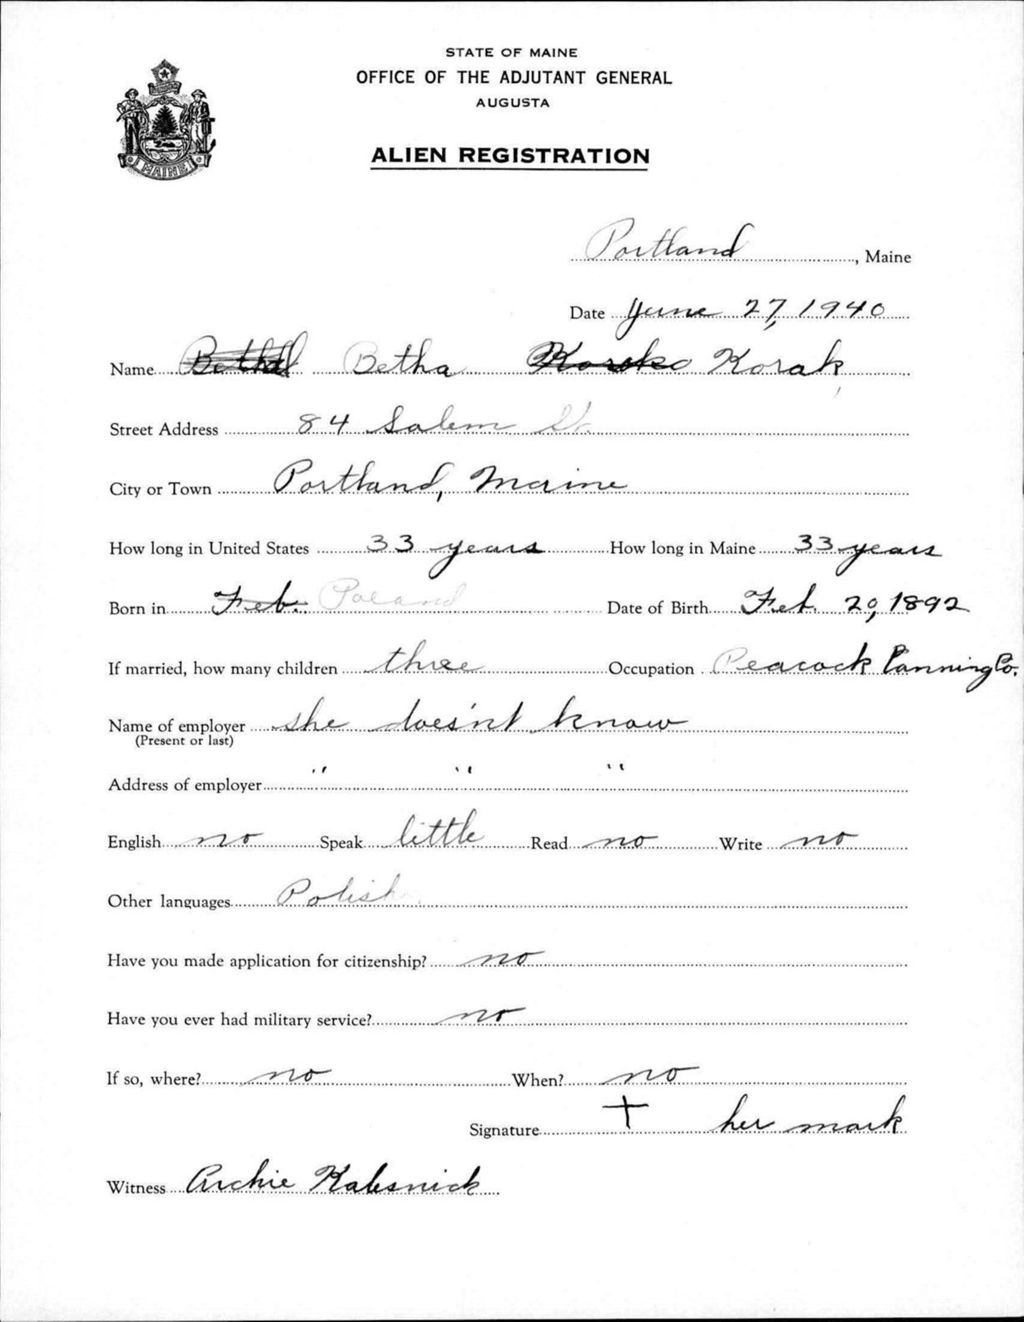 STATE OF MAINE
OFFICE OF THE ADJUTANT GENERAL
AUGUSTA
ALIEN REGISTRATION
MAINE
Portland, Maine
Date June 27, 1940
Name Betha Korak
Street Address 84 Salem St.
City or Town Portland, Maine
How long in United States 33 years How long in Maine 33 years
Born in Feb. Poland Date of Birth Feb. 20, 1892
If married, how many children three Occupation Peacock Canning Co.
Name of employer she does'nt know
(Present or last)
Address of employer " " "
English no Speak little Read no Write no
Other languages Polish
Have you made application for citizenship? no
Have you ever had military service? no
If so, where? no When? no
Signature + her mark
Witness Archie Kalesnick